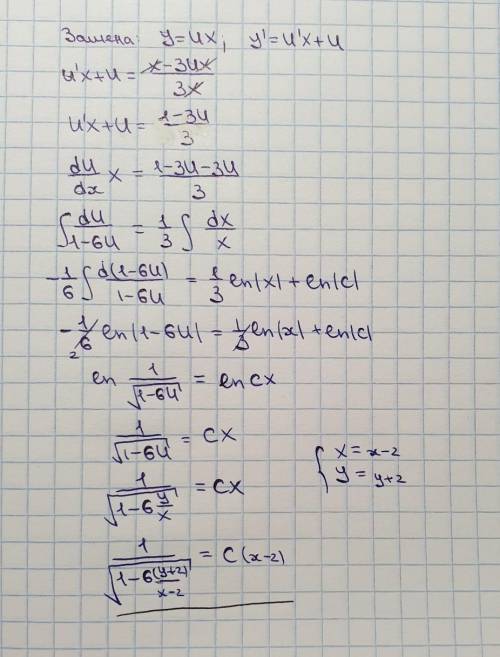 Замена: y=ux, y'=u'x+u
u'x+u = (x-3ux)/(3x)
u'x+u = (1-3u)/3
du/dx x = (1-3u-3u)/3
∫ du/(1-6u) = 1/3 ∫ dx/x
-1/6 ∫ d(1-6u)/(1-6u) = 1/3 ln|x| + ln|c|
-1/6 2 ln|1-6u| = 1/3 ln|x| + ln|c|
ln 1/√(1-6u) = ln cx
1/√(1-6u) = cx
{ x = x-2
1/√(1-6 y/x) = cx
y = y+2
1/√(1-6 (y+2)/(x-2)) = c(x-2)